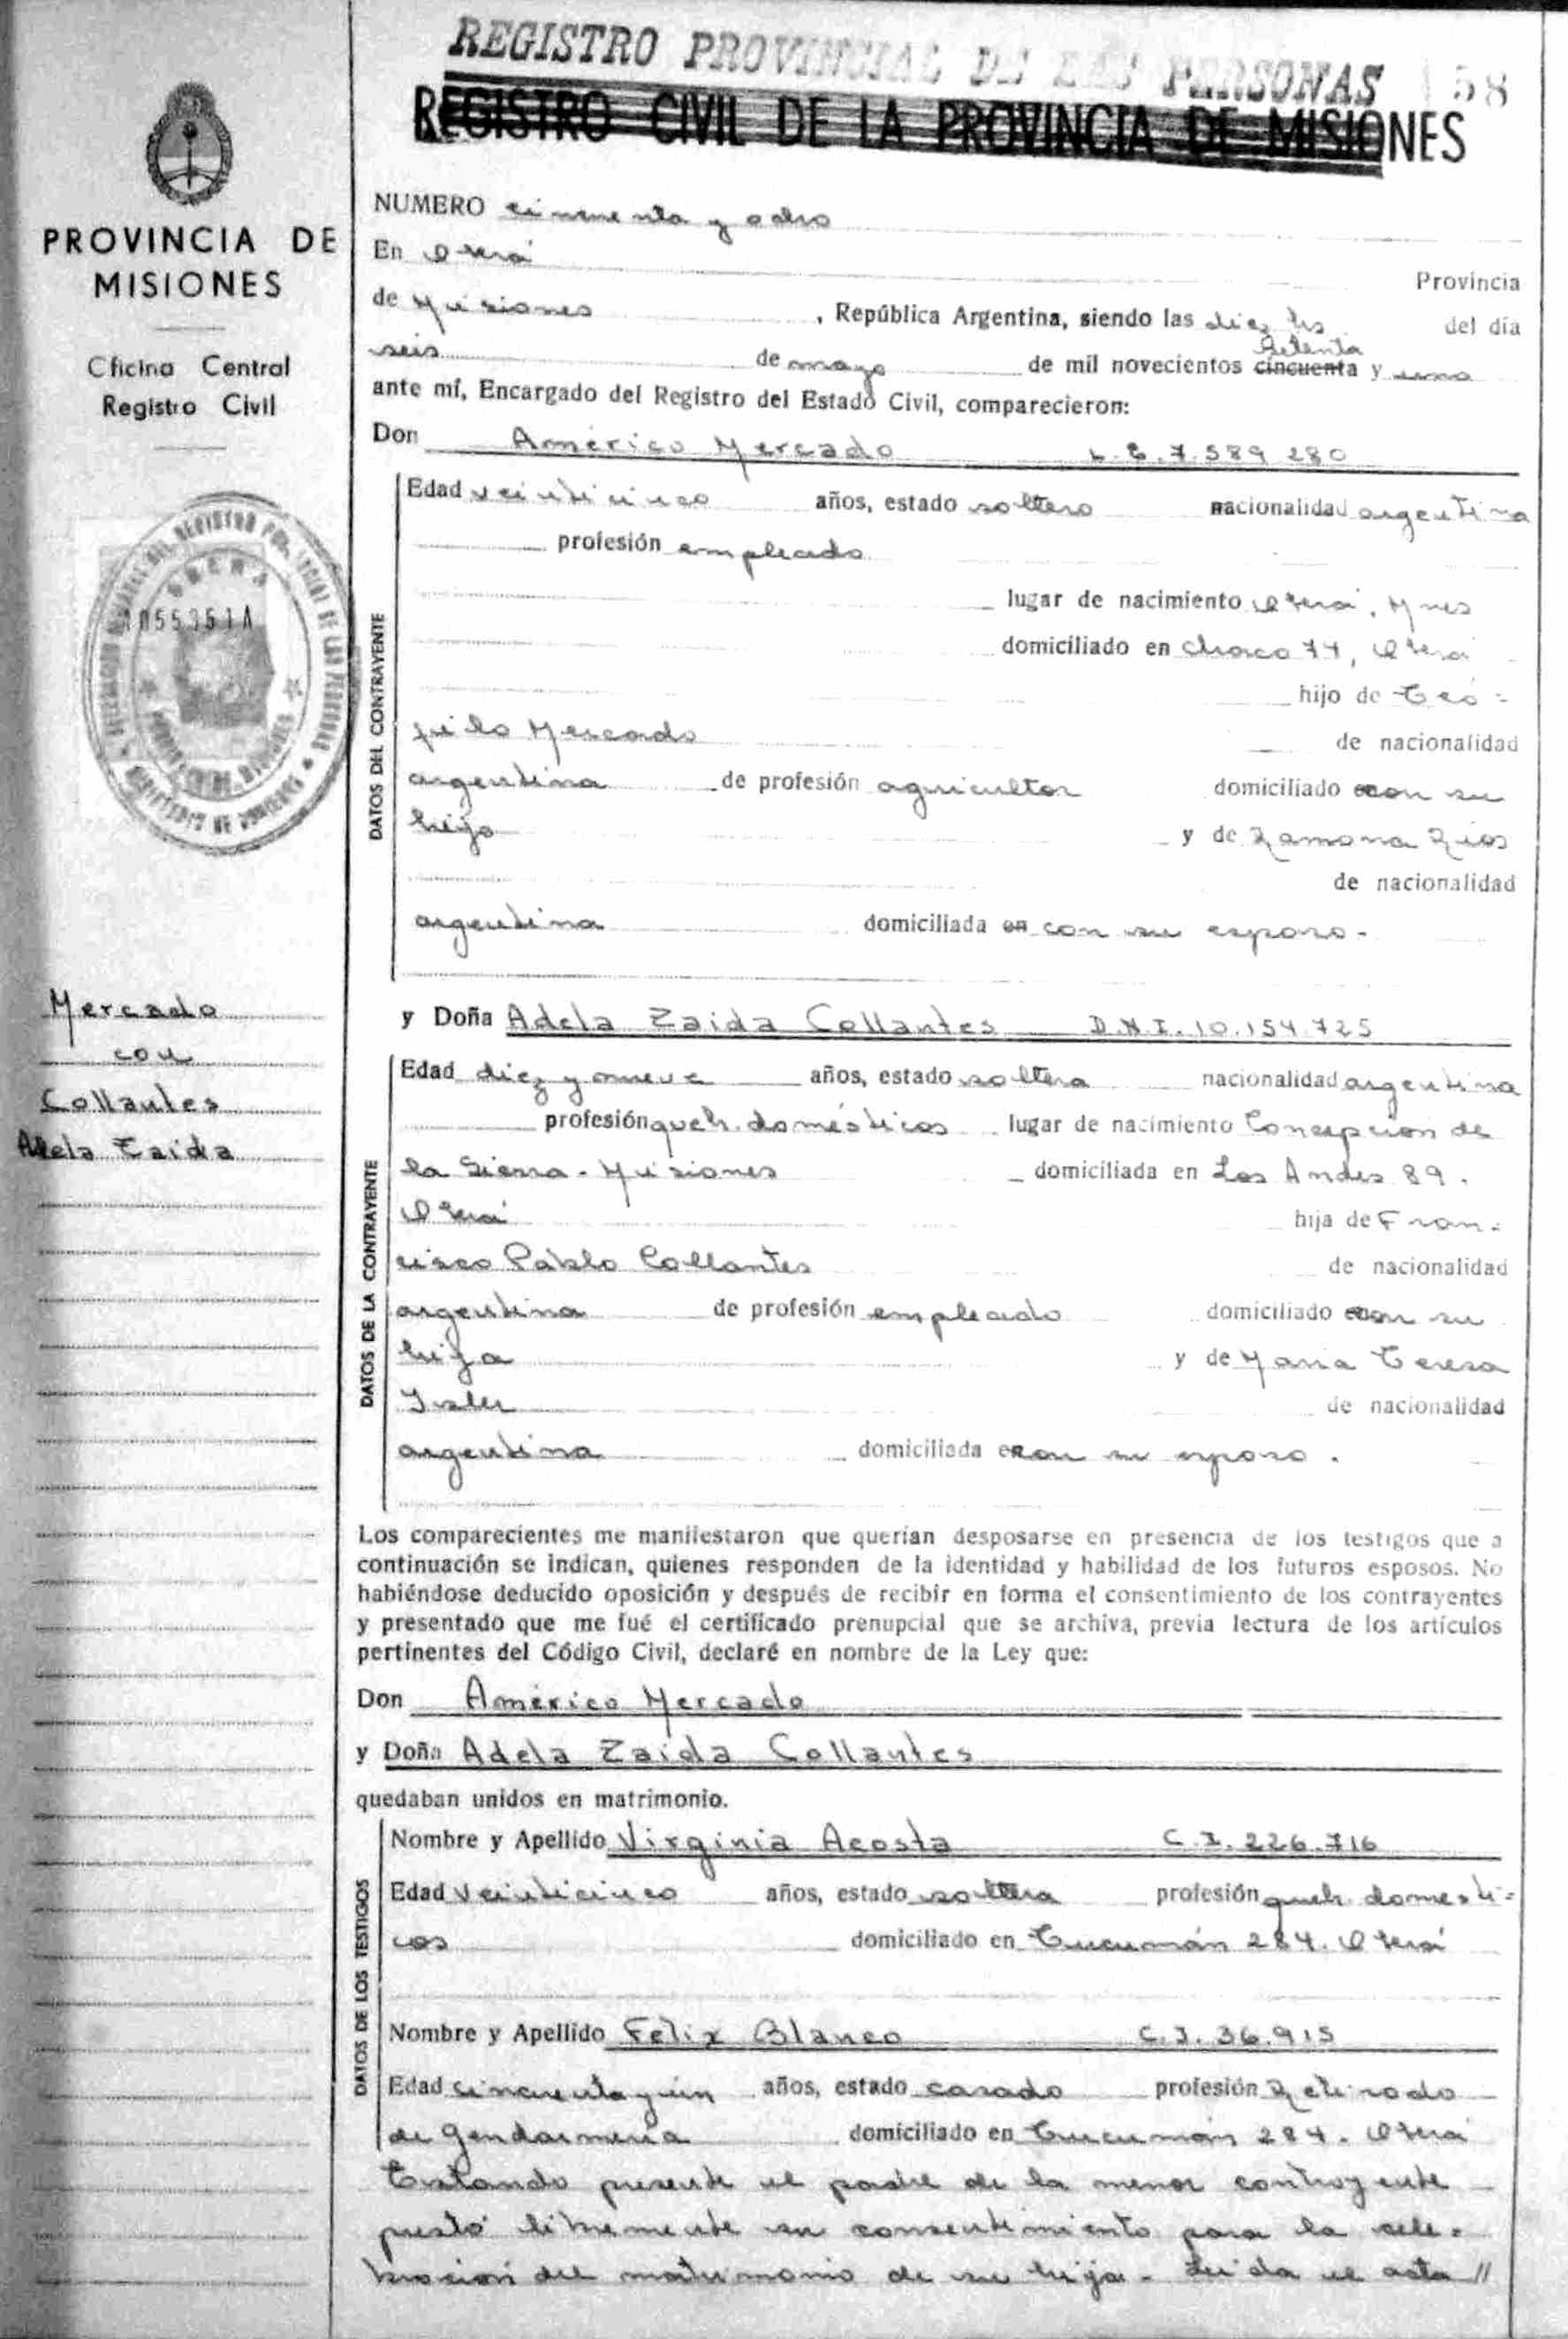 REGISTRO PROVINCIAL DE LAS PERSONAS 58
REGISTRO CIVIL DE LA PROVINCIA DE MISIONES
PROVINCIA DE
MISIONES
Oficina Central
Registro Civil
1055351A
OBERA
Mercado
con
Collantes
Adela Zaida
NUMERO cincuenta y ocho
En Oberá Provincia
de Misiones, República Argentina, siendo las diez hs del día
setenta
seis de mayo de mil novecientos cincuenta y uno
ante mí, Encargado del Registro del Estado Civil, comparecieron:
Don Américo Mercado L.E. 7.589 280
DATOS DEL CONTRAYENTE
Edad veinticinco años, estado soltero nacionalidad argentina
profesión empleado
lugar de nacimiento Oberá, Mnes
domiciliado en Chaco 77, Oberá
hijo de Teó=
filo Mercado de nacionalidad
argentina de profesión agricultor domiciliado con su
hijo y de Ramona Rios
de nacionalidad
argentina domiciliada en con su esposo.-
y Doña Adela Zaida Collantes D.N.I. 10.154.725
DATOS DE LA CONTRAYENTE
Edad diez y nueve años, estado soltera nacionalidad argentina
profesión queh. domésticos lugar de nacimiento Concepción de
la Sierra - Misiones domiciliada en Los Andes 89.
Oberá hija de Fran=
cisco Pablo Collantes de nacionalidad
argentina de profesión empleado domiciliado con su
hija y de Maria Teresa
de nacionalidad
argentina domiciliada con su esposo.
Los comparecientes me manifestaron que querían desposarse en presencia de los testigos que a
continuación se indican, quienes responden de la identidad y habilidad de los futuros esposos. No
habiéndose deducido oposición y después de recibir en forma el consentimiento de los contrayentes
y presentado que me fué el certificado prenupcial que se archiva, previa lectura de los artículos
pertinentes del Código Civil, declaré en nombre de la Ley que:
Don Américo Mercado
y Doña Adela Zaida Collantes
quedaban unidos en matrimonio.
DATOS DE LOS TESTIGOS
Nombre y Apellido Virginia Acosta C.I. 226.716
Edad veinticinco años, estado soltera profesión queh. domesti=
cos domiciliado en Tucumán 284. Oberá
Nombre y Apellido Felix Blanco C.I. 36.915
Edad cincuenta y un años, estado casado profesión Retirado
de Gendarmería domiciliado en Tucumán 284. Oberá
Estando presente el padre de la menor contrayente
prestó libremente su consentimiento para la cele=
bración del matrimonio de su hija.- Leida el acta //